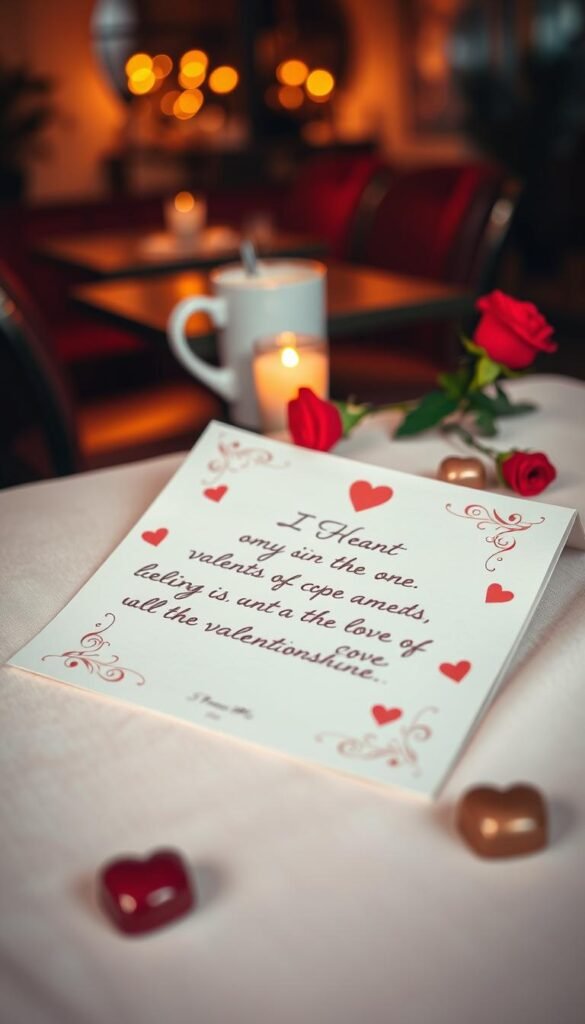 I Heant
omy öin the one.
valents of cope ameds,
leeling is. unt a the love of
cove
uall the valentionshine..